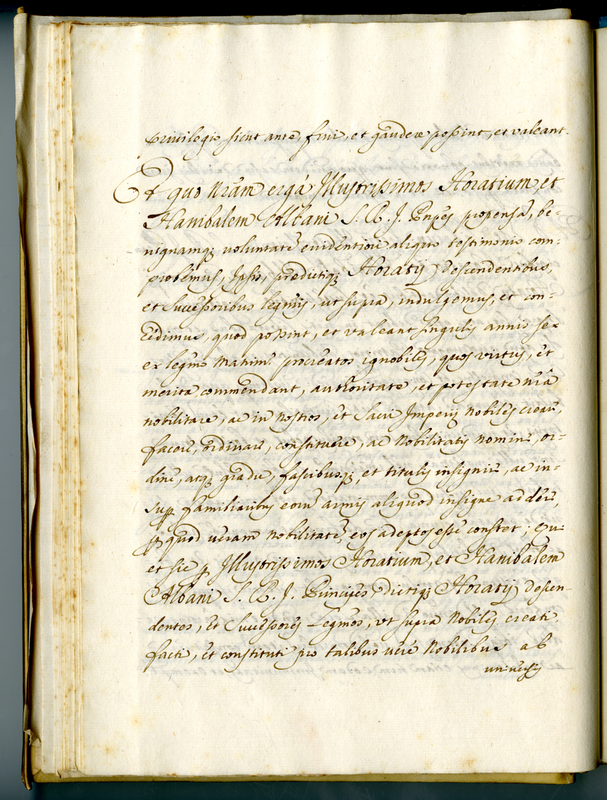 privilegio sicut ante, frui, et gaudere possint, et valeant.
Et quo Nram erga Illustrissimos Horatium et
Hanibalem Albani S. R. J. Pnpes propensã, be-
nignamq; voluntatẽ evidentiori aliquo testimonio com-
probemus, Ipsis, predictiq; Horatij descendentibus,
et Successoribus legmis, ut supra, indulgemus, et con-
cedimus, quod possint, et valeant singulis annis sex
ex legmo Matrim.º procreatos ignobiles, quos virtus, et
merita commendant, authoritate, et potestate nrã
nobilitare, ac in Nostros, et Sacri Imperij Nobiles creare,
facere, ordinare, constituere, ac Nobilitatis nomine, or-
dine, atq; gradu, fascibusq; et titulis insignire, ac in-
sup. familiaribus eorũ armis aliquod insigne addere,
p quod veram Nobilitatẽ eos adeptos esse constet;
et sic p Illustrissimos Horatium, et Hanibalem
Albani S. R. J. Principes, dictiq; Horatij descen-
dentes, et Successores Legmos, ut supra Nobiles creati
facti, et constituti pro talibus vere Nobilibus ab
universis